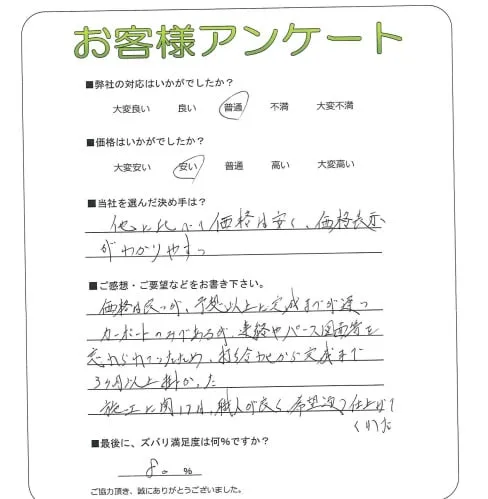 お客様アンケート
■弊社の対応はいかがでしたか?
大変良い 良い 普通 不満 大変不満
■価格はいかがでしたか?
大変安い 安い 普通 高い 大変高い
■当社を選んだ決め手は?
他に比べて価格は安く、価格表示
がわかりやすっ
■ご感想・ご要望などをお書き下さい。
価格は良っが、予想以上に完成までが遅っ
カーポートのみであるが、連絡やパース図面等を
忘れられていたため、打ち合わせから完成まで
3ヶ月以上掛かった
施工に関しては、職人が良く、希望通りで仕上げて
くれた
■最後に、ズバリ満足度は何%ですか?
80 %
ご協力頂き、誠にありがとうございました。